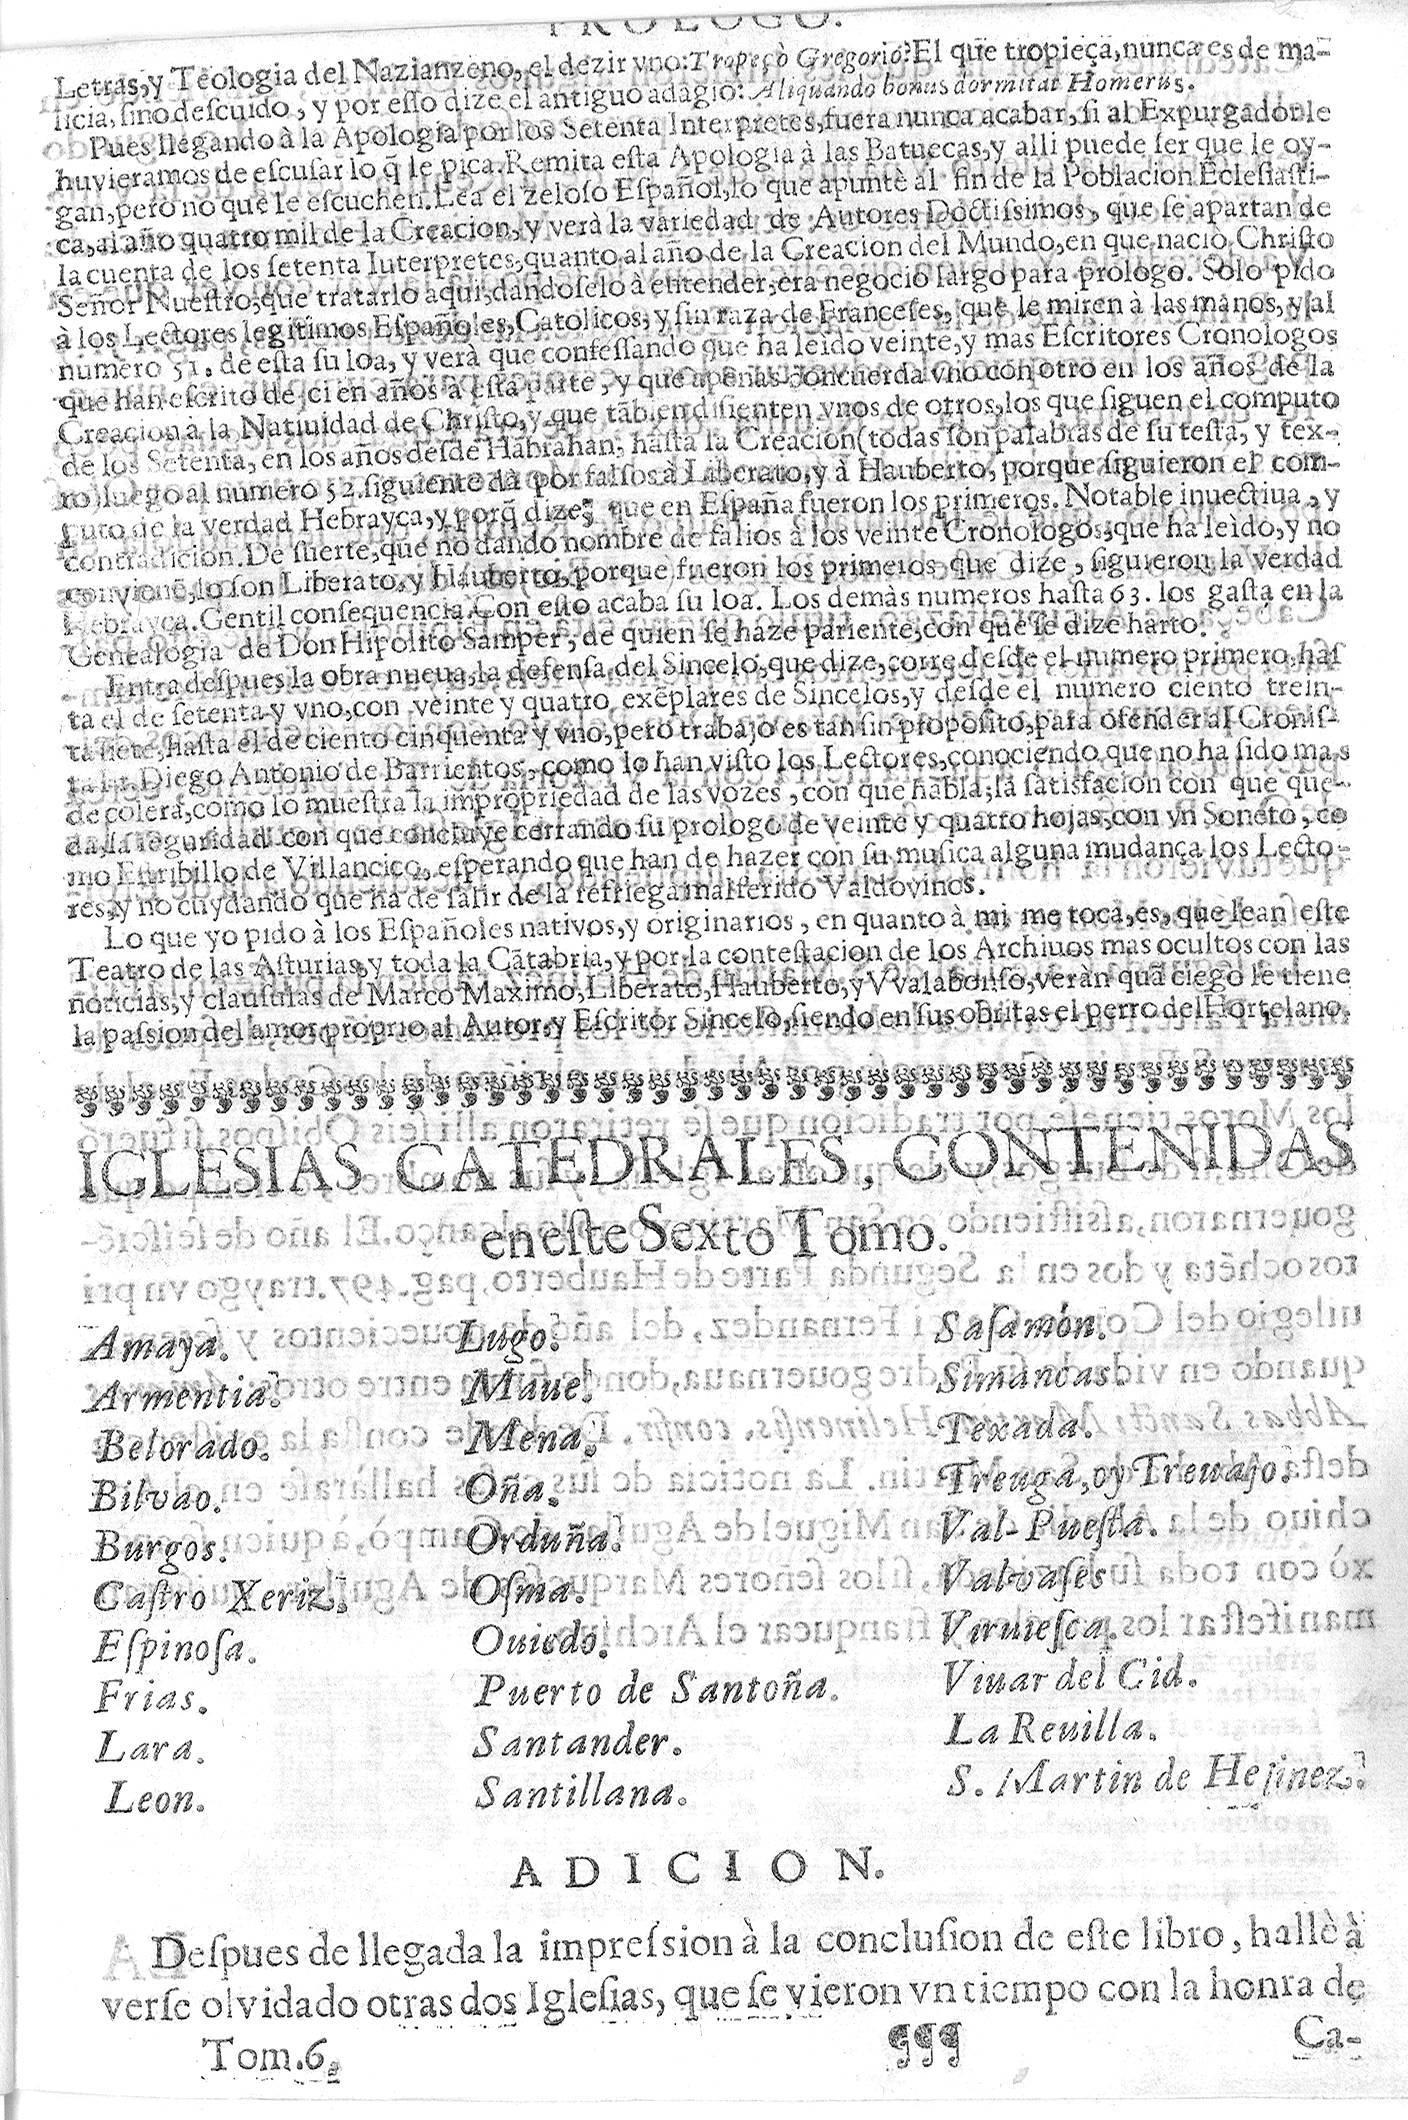 PROLOGO.
Letras, y Teologia del Nazianzeno, el dezir vno: Tropeçò Gregorio? El que tropieça, nunca es de ma-
licia, sino descuido, y por eſto dize el antiguo adagio: Aliquando bonus dormitat Homerus.
Pues llegando à la Apologia por los Setenta Interpretes, fuera nunca acabar, ſi al Expurgadorle
huvieramos de eſcuſar lo q̃ le pica. Remita eſta Apologia à las Batuecas, y alli puede ſer que le oy-
gan, pero no que le eſcuchen. Lea el zeloſo Eſpañol, lo que apuntè al fin de la Poblacion Ecleſiaſti-
ca, al año quatro mil de la Creacion, y verà la variedad de Autores Doctiſsimos, que ſe apartan de
la cuenta de los ſetenta Iuterpretes, quanto al año de la Creacion del Mundo, en que naciò Chriſto
Señor Nueſtro, que tratarlo aqui, dandoſelo à entender, era negocio largo para prologo. Solo pido
à los Lectores legitimos Eſpañoles, Catolicos, y ſin raza de Franceſes, que le miren à las manos, y al
numero 51. de eſta ſu loa, y verà que confeſſando que ha leìdo veinte, y mas Eſcritores Cronologos
que han eſcrito de cien años à eſta parte, y que apenas concuerda vno con otro en los años de la
Creacion à la Natiuidad de Chriſto, y que tãbien diſienten vnos de otros, los que ſiguen el computo
de los Setenta, en los años deſde Habrahan, haſta la Creacion (todas ſon palabras de ſu teſta, y tex-
to) luego al numero 52. ſiguiente dà por falſos à Liberato, y à Hauberto, porque ſiguieron el com-
puto de la verdad Hebrayca, y porq̃ dize, que en Eſpaña fueron los primeros. Notable inuectiua, y
contradicion. De ſuerte, que no dando nombre de falſos à los veinte Cronologos, que ha leìdo, y no
convienē, lo ſon Liberato, y Hauberto, porque fueron los primeros que dize, ſiguieron la verdad
Hebrayca. Gentil conſequencia. Con eſto acaba ſu loa. Los demàs numeros haſta 63. los gaſta en la
Genealogia de Don Hipolito Samper, de quien ſe haze pariente, con que ſe dize harto.
Entra deſpues la obra nueua, la defenſa del Sincelo, que dize, corre deſde el numero primero, haſ
ta el de ſetenta y vno, con veinte y quatro exēplares de Sincelos, y deſde el numero ciento trein-
ta ſiete, haſta el de ciento cinquenta y vno, pero trabajo es tan ſin propoſito, para ofender al Croniſ-
ta Diego Antonio de Barrientos, como lo han viſto los Lectores, conociendo que no ha ſido mas
de colera, como lo mueſtra la impropriedad de las vozes, con que habla; la ſatisfacion con que que-
da, la ſeguridad con que concluye cerrando ſu prologo de veinte y quatro hojas, con vn Soneto, co
mo Eſtribillo de Villancico, eſperando que han de hazer con ſu muſica alguna mudança los Lecto-
res, y no cuydando que ha de ſalir de la refriega malferido Valdovinos.
Lo que yo pido à los Eſpañoles nativos, y originarios, en quanto à mi me toca, es, que lean eſte
Teatro de las Aſturias, y toda la Cãtabria, y por la conteſtacion de los Archiuos mas ocultos con las
noticias, y clauſulas de Marco Maximo, Liberato, Hauberto, y VValabonſo, veràn quã ciego le tiene
la paſsion del amor proprio al Autor, y Eſcritor Sincelo, ſiendo en ſus obritas el perro del Hortelano.
IGLESIAS CATEDRALES, CONTENIDAS
en eſte Sexto Tomo.
Amaya.
Armentia.
Belorado.
Bilvao.
Burgos.
Caſtro Xeriz.
Eſpinoſa.
Frias.
Lara.
Leon.
Lugo.
Maue.
Mena.
Oña.
Orduña.
Oſma.
Ouiedo.
Puerto de Santoña.
Santander.
Santillana.
Saſamón.
Simancas.
Texada.
Treuga, oy Treuajo.
Val-Pueſta.
Valvaſes
Viruieſca.
Viuar del Cid.
La Reuilla.
S. Martin de Heſinez.
ADICION.
Deſpues de llegada la impreſsion à la concluſion de eſte libro, hallè à
verſe olvidado otras dos Igleſias, que ſe vieron vn tiempo con la honra de
Tom. 6. ¶¶¶ Ca-